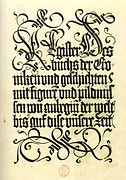 Register Des
buchs der Cro-
niken und geschichten
mit figurē und pildnus-
sen von anbegiñ der welt
bis auf dise unsere Zeit